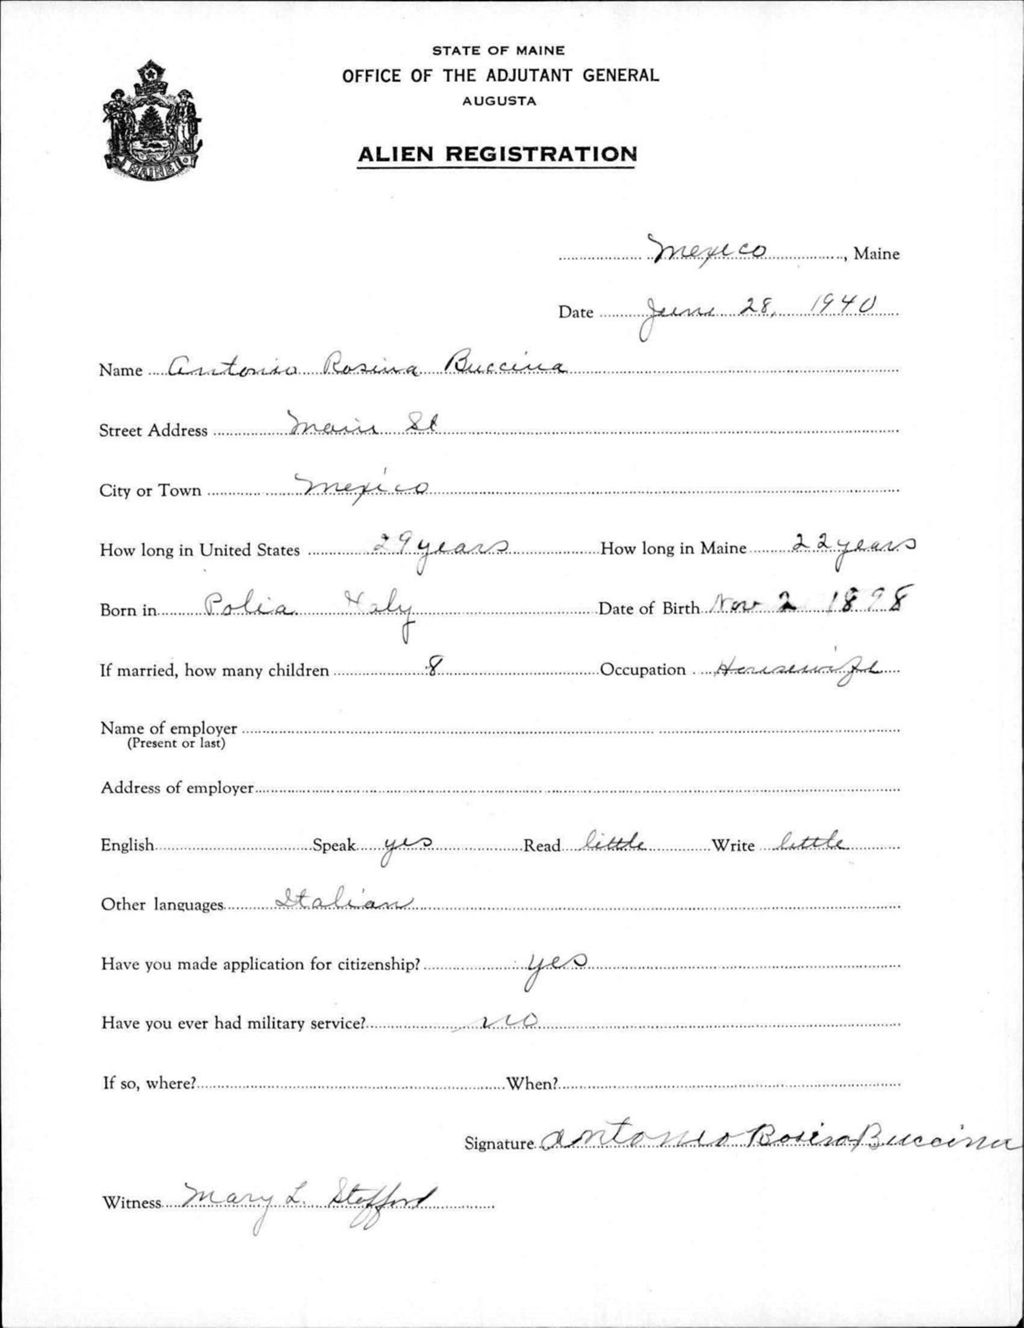 STATE OF MAINE
OFFICE OF THE ADJUTANT GENERAL
AUGUSTA
ALIEN REGISTRATION
MAINE
Mexico, Maine
Date June 28, 1940
Name Antonio Rosina Buccina
Street Address Main St
City or Town Mexico
How long in United States 29 years How long in Maine 22 years
Born in Polia Italy Date of Birth Nov 2 1898
If married, how many children 8 Occupation Housewife
Name of employer
(Present or last)
Address of employer
English Speak yes Read little Write little
Other languages Italian
Have you made application for citizenship? yes
Have you ever had military service? no
If so, where? When?
Signature Antonio Rosina Buccina
Witness Mary L. Stafford